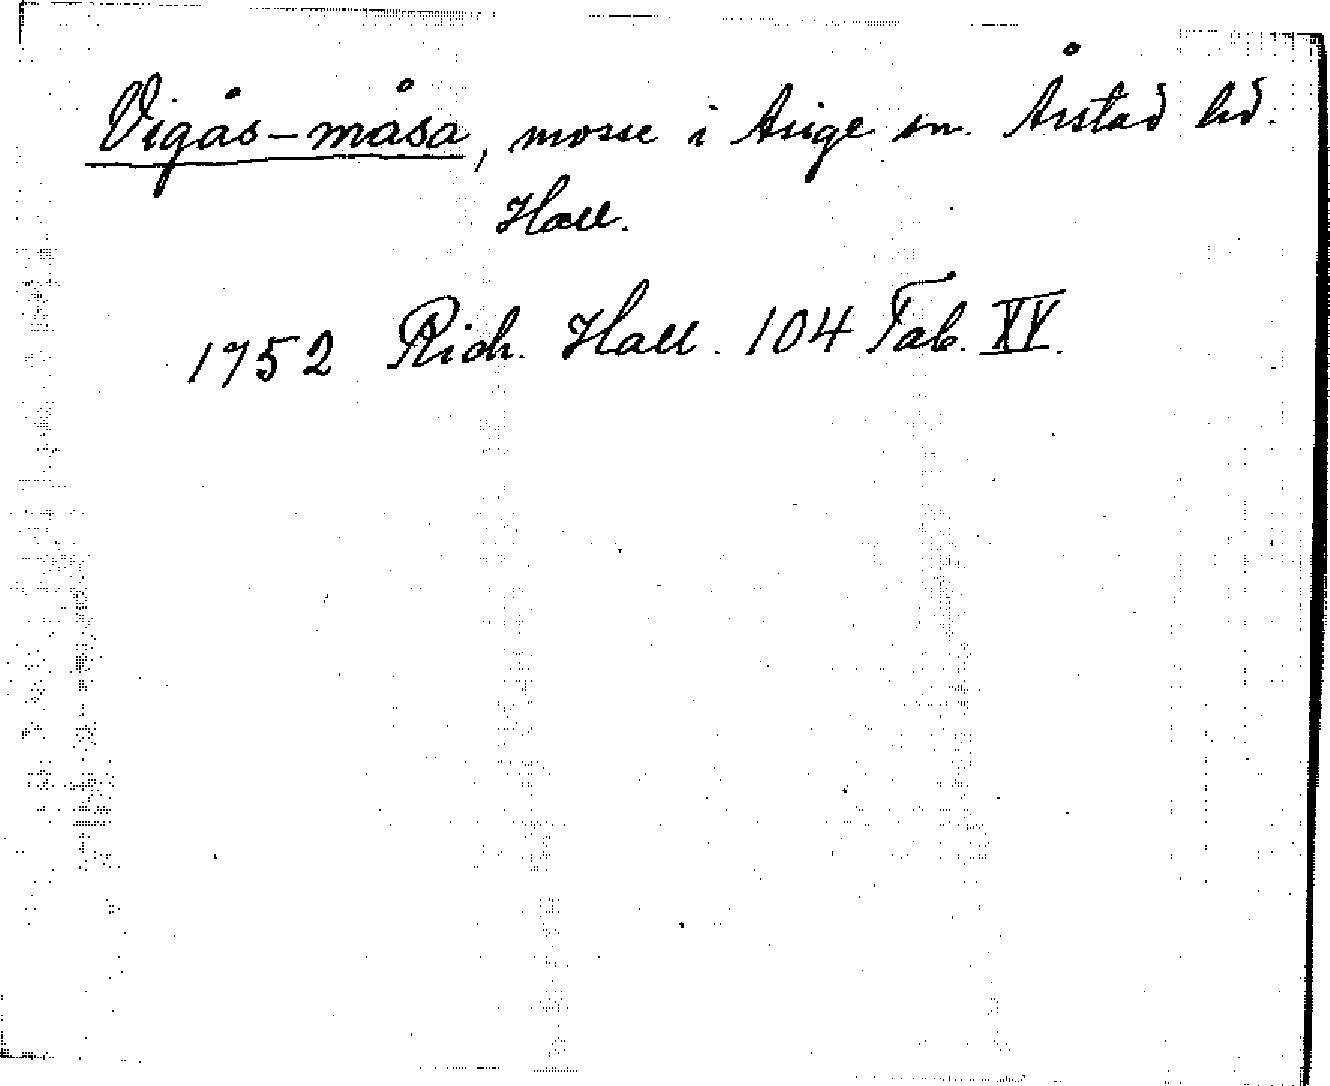 Vigås-måsa, mosse i Asige sn. Årstad hd.
Hall.
1752 Rich. Hall. 104 Tab. XV.